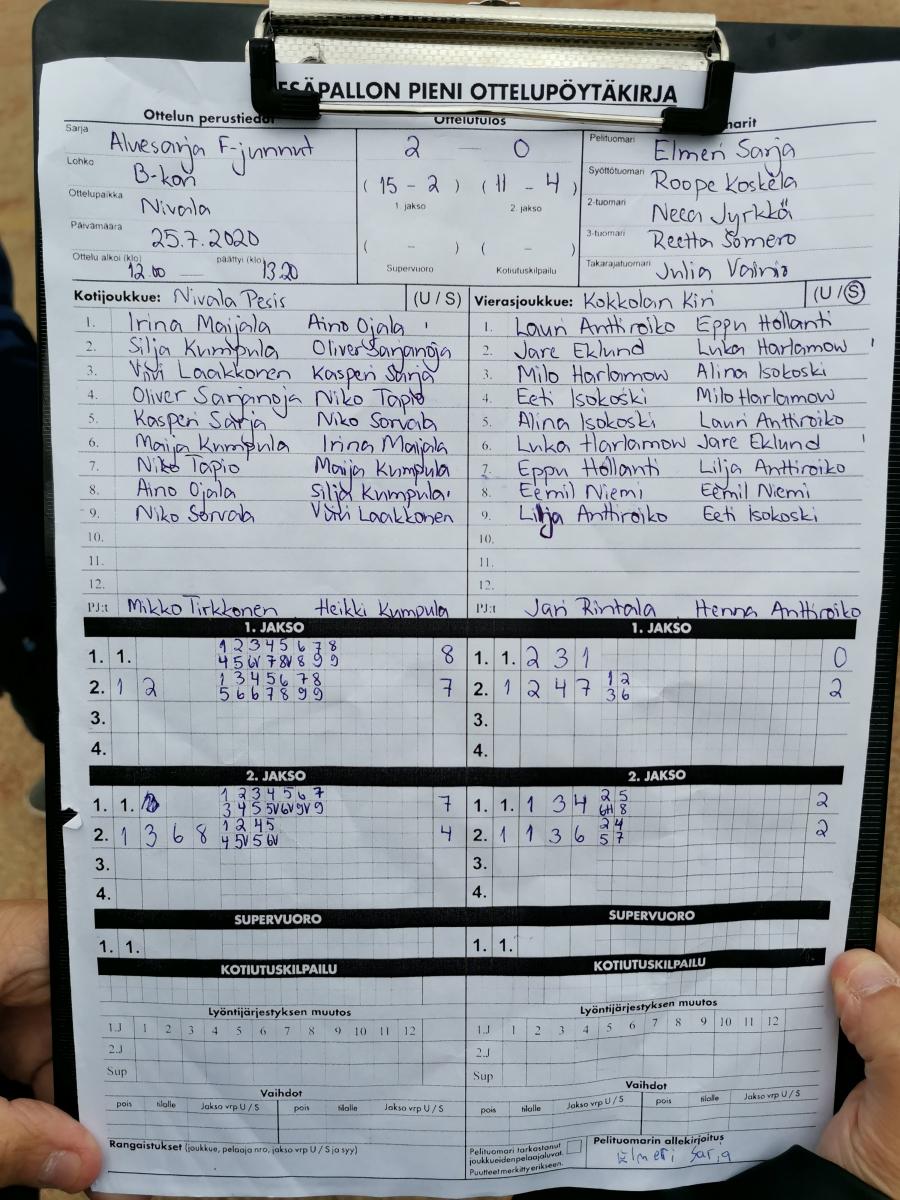 ESÄPALLON PIENI OTTELUPÖYTÄKIRJA
Ottelun perustiedot
Ottelutulos
marit
Sarja Aluesarja F-junnut
Lohko B-kon
Ottelupaikka Nivala
Päivämäärä 25.7.2020
Ottelu alkoi (klo) 12.00 — päättyi (klo) 13.20
2 — 0
( 15 - 2 ) ( 11 - 4 )
1. jakso 2. jakso
( - ) ( - )
Supervuoro Kotiutuskilpailu
Pelituomari Elmeri Sarja
Syöttötuomari Roope Koskela
2-tuomari Neea Jyrkkä
3-tuomari Reetta Somero
Takarajatuomari Julia Vainio
Kotijoukkue: Nivala Pesis (U / S)
1. Irina Maijala Aino Ojala
2. Silja Kumpula Oliver Sarjanoja
3. Viivi Laakkonen Kasperi Sarja
4. Oliver Sarjanoja Niko Tapio
5. Kasperi Sarja Niko Sorvala
6. Maija Kumpula Irina Maijala
7. Niko Tapio Maija Kumpula
8. Aino Ojala Silja Kumpula
9. Niko Sorvala Viivi Laakkonen
10.
11.
12.
PJ:t Mikko Tirkkonen Heikki Kumpula
Vierasjoukkue: Kokkolan Kiri (U / S)
1. Lauri Anttiroiko Eppu Hollanti
2. Jare Eklund Luka Harlamow
3. Milo Harlamow Alina Isokoski
4. Eeti Isokoski Milo Harlamow
5. Alina Isokoski Lauri Anttiroiko
6. Luka Harlamow Jare Eklund
7. Eppu Hollanti Lilja Anttiroiko
8. Eemil Niemi Eemil Niemi
9. Lilja Anttiroiko Eeti Isokoski
10.
11.
12.
PJ:t Jari Rintala Henna Anttiroiko
1. JAKSO
1 2 3 4 5 6 7 8
1. 1. 8
4 5 6V 7 8V 8 9 9
1 3 4 5 6 7 8
2. 1 2 7
5 6 6 7 8 9 9
3.
4.
1. JAKSO
1. 1. 2 3 1 0
1 2
2. 1 2 4 7 2
3 6
3.
4.
2. JAKSO
1 2 3 4 5 6 7
1. 1. 7
3 4 5 5V 6V 9V 9
1 2 4 5
2. 1 3 6 8 4
4 5V 5 6V
3.
4.
2. JAKSO
2 5
1. 1. 1 3 4 2
6H 8
2 4
2. 1 1 3 6 2
5 7
3.
4.
SUPERVUORO
1. 1.
SUPERVUORO
1. 1.
KOTIUTUSKILPAILU
KOTIUTUSKILPAILU
Lyöntijärjestyksen muutos
1.J 1 2 3 4 5 6 7 8 9 10 11 12
2.J
Sup
Lyöntijärjestyksen muutos
1.J 1 2 3 4 5 6 7 8 9 10 11 12
2.J
Sup
Vaihdot
pois tilalle Jakso vrp U / S pois tilalle Jakso vrp U / S
Vaihdot
pois tilalle Jakso vrp U / S pois tilalle Jakso vrp U / S
Rangaistukset (joukkue, pelaaja nro, jakso vrp U / S ja syy)
Pelituomari tarkastanut
joukkueidenpelaajaluvat.
Puutteet merkitty erikseen.
Pelituomarin allekirjoitus
Elmeri Sarja